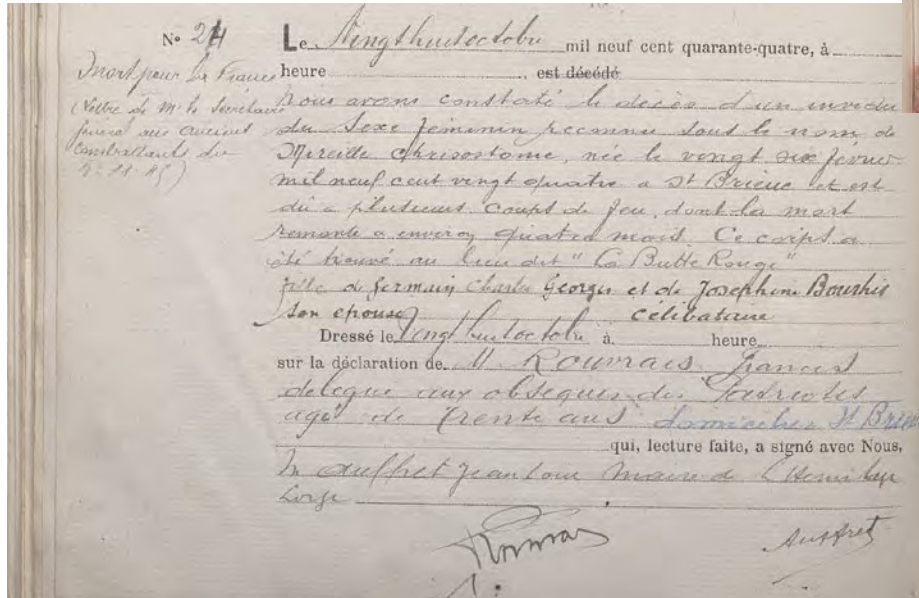 N° 24
Mort pour la France
(Lettre de Mr le Secrétaire
général aux anciens
Combattants du
9-11-45)
Le Vingt huit octobre mil neuf cent quarante-quatre, à
heure est décédé
nous avons constaté le décès d'un invidu
du sexe féminin reconnu sous le nom de
Mireille Chrisostome, née le vingt six février
mil neuf cent vingt quatre a St Brieuc et est
dû a plusieurs coups de feu, dont la mort
remonte a environ quatre mois Ce corps a
été trouvé au lieu dit "La Butte Rouge"
fille de Germain Charles Georges et de Josephine Bourhis
son épouse célibataire
Dressé le Vingt huit octobre à heure
sur la déclaration de M Rouvrais Francis
délégué aux obseques des Patriotes
agé de trente ans domicilié St Brieuc
qui, lecture faite, a signé avec Nous,
M Auffret Jean Louis Maire de L'Hermitage
Lorge
Auffret